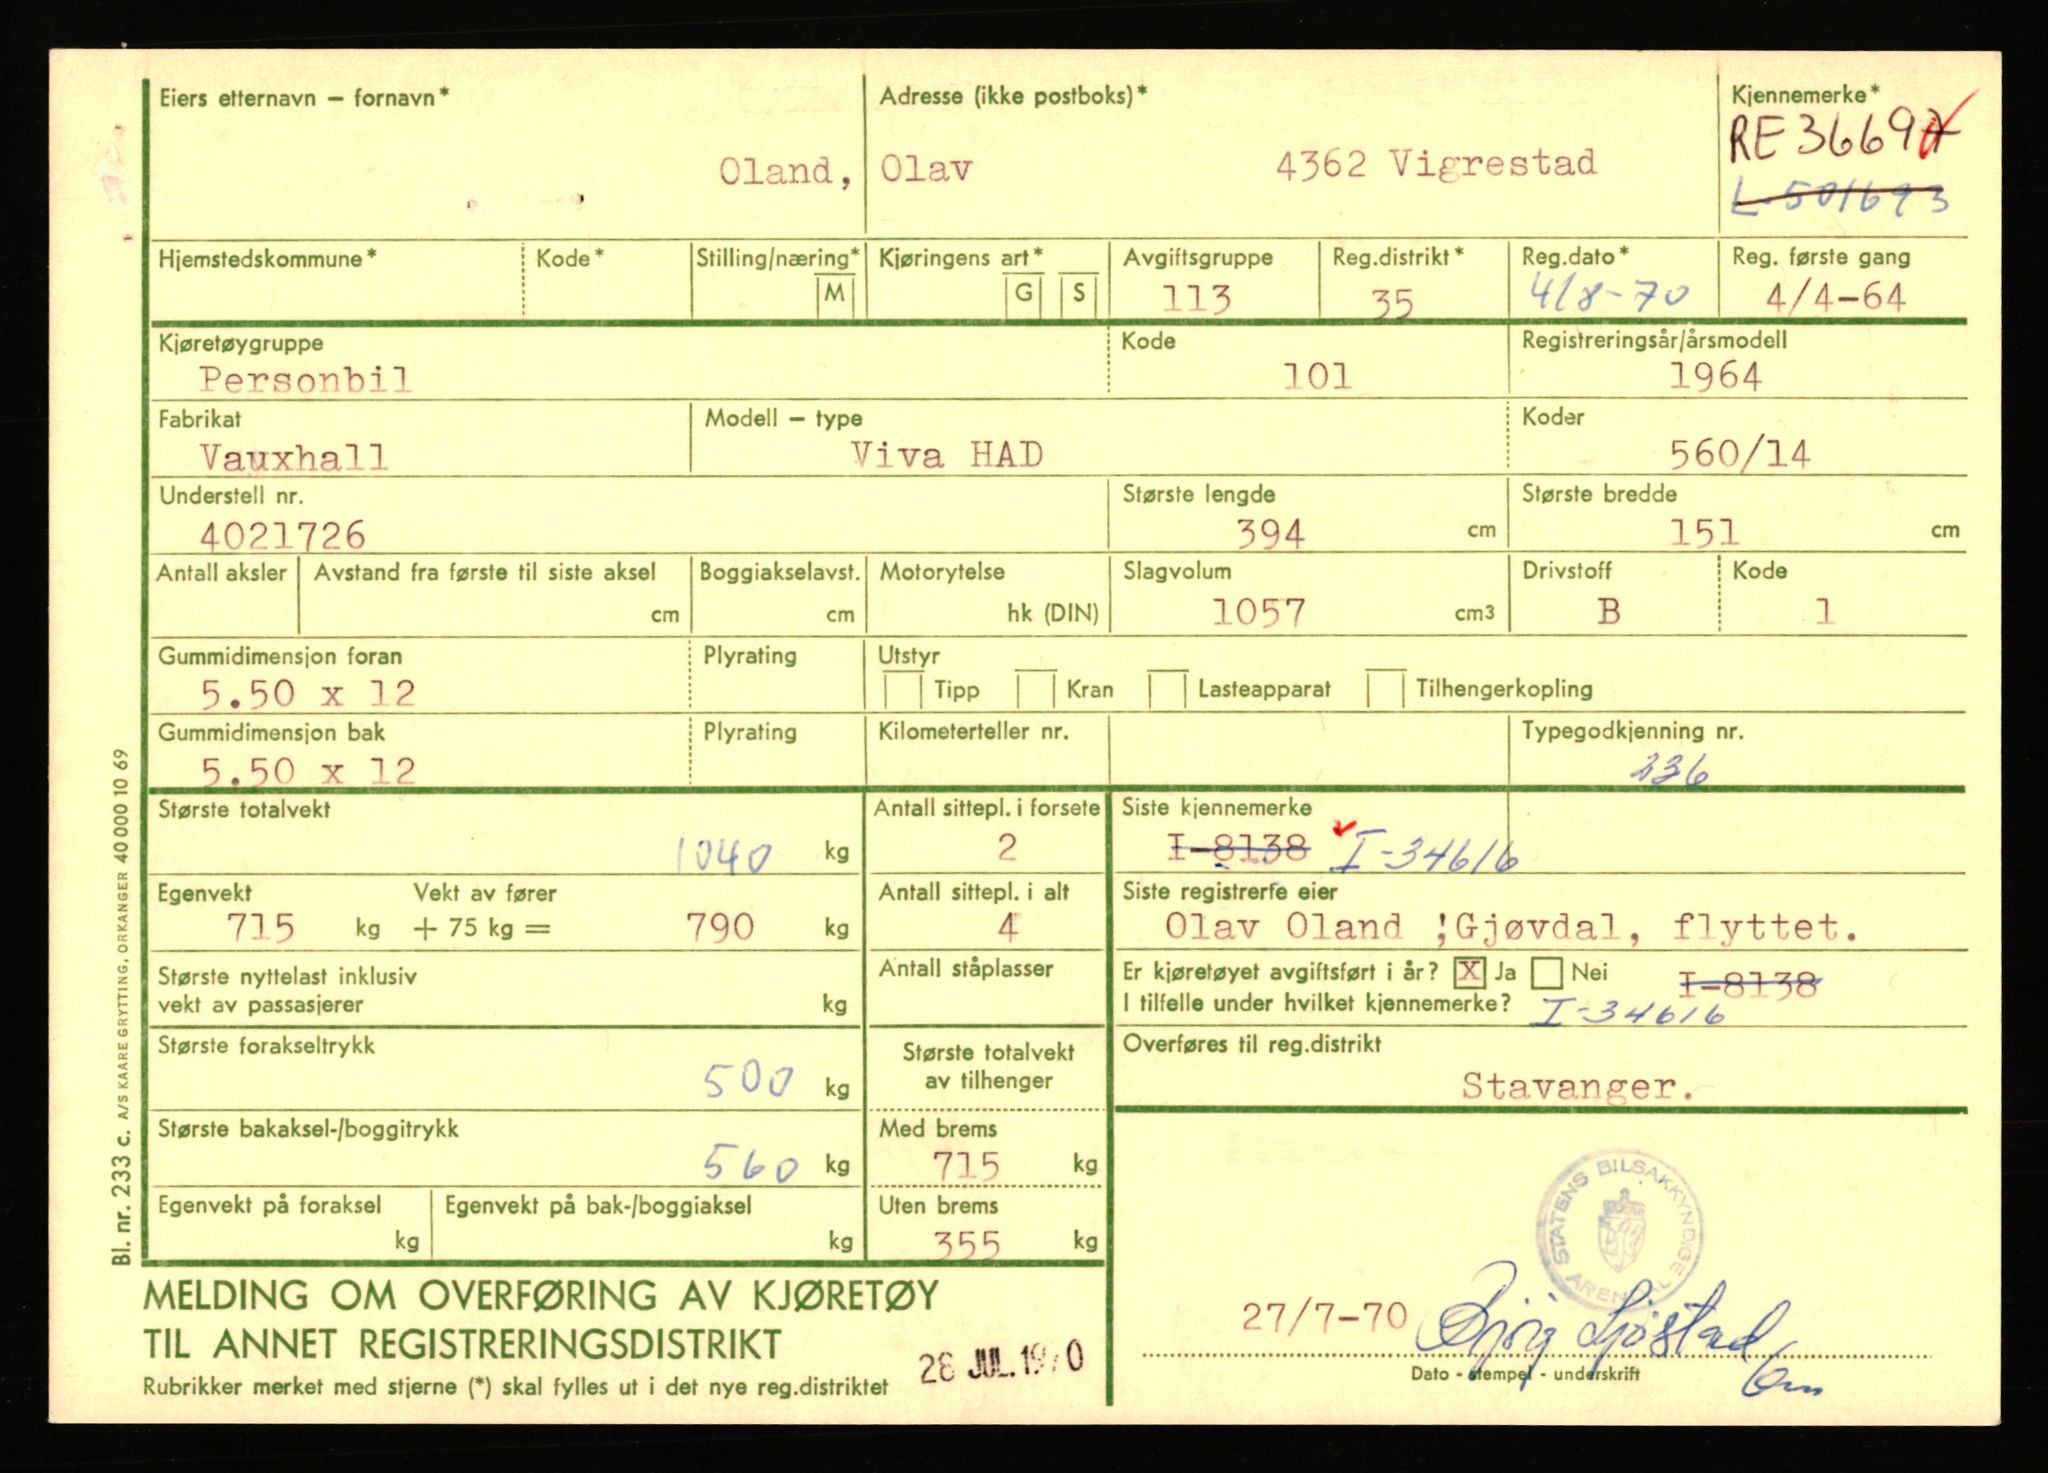 Eiers etternavn – fornavn* Adresse (ikke postboks)* Kjennemerke*
RE 36697
Oland, Olav 4362 Vigrestad
L-501693
Hjemstedskommune* Kode* Stilling/næring* Kjøringens art* Avgiftsgruppe Reg.distrikt* Reg.dato* Reg. første gang
M G S 113 35 4/8-70 4/4-64
Kjøretøygruppe Kode Registreringsår/årsmodell
Personbil 101 1964
Fabrikat Modell – type Koder
Vauxhall Viva HAD 560/14
Understell nr. Største lengde Største bredde
4021726 394 cm 151 cm
Antall aksler Avstand fra første til siste aksel Boggiakselavst. Motorytelse Slagvolum Drivstoff Kode
cm cm hk (DIN) 1057 cm3 B 1
Gummidimensjon foran Plyrating Utstyr
5.50 x 12 Tipp Kran Lasteapparat Tilhengerkopling
Gummidimensjon bak Plyrating Kilometerteller nr. Typegodkjenning nr.
5.50 x 12 236
Største totalvekt Antall sittepl. i forsete Siste kjennemerke
1040 kg 2 I-8138 I-34616
Egenvekt Vekt av fører Antall sittepl. i alt Siste registrerte eier
715 kg + 75 kg = 790 kg 4 Olav Oland ;Gjøvdal, flyttet.
Største nyttelast inklusiv Antall ståplasser Er kjøretøyet avgiftsført i år? X Ja Nei I-8138
vekt av passasjerer kg I tilfelle under hvilket kjennemerke? I-34616
Største forakseltrykk Største totalvekt Overføres til reg.distrikt
500 kg av tilhenger Stavanger.
Største bakaksel-/boggitrykk Med brems
560 kg 715 kg
Egenvekt på foraksel Egenvekt på bak-/boggiaksel Uten brems
kg kg 355 kg
STATENS BILSAKKYNDIGE ARENDAL
MELDING OM OVERFØRING AV KJØRETØY
TIL ANNET REGISTRERINGSDISTRIKT
28 JUL. 1970
27/7-70
Rubrikker merket med stjerne (*) skal fylles ut i det nye reg.distriktet
Dato - stempel - underskrift
Bl. nr. 233 c. A/S KAARE GRYTTING, ORKANGER 40 000 10 69